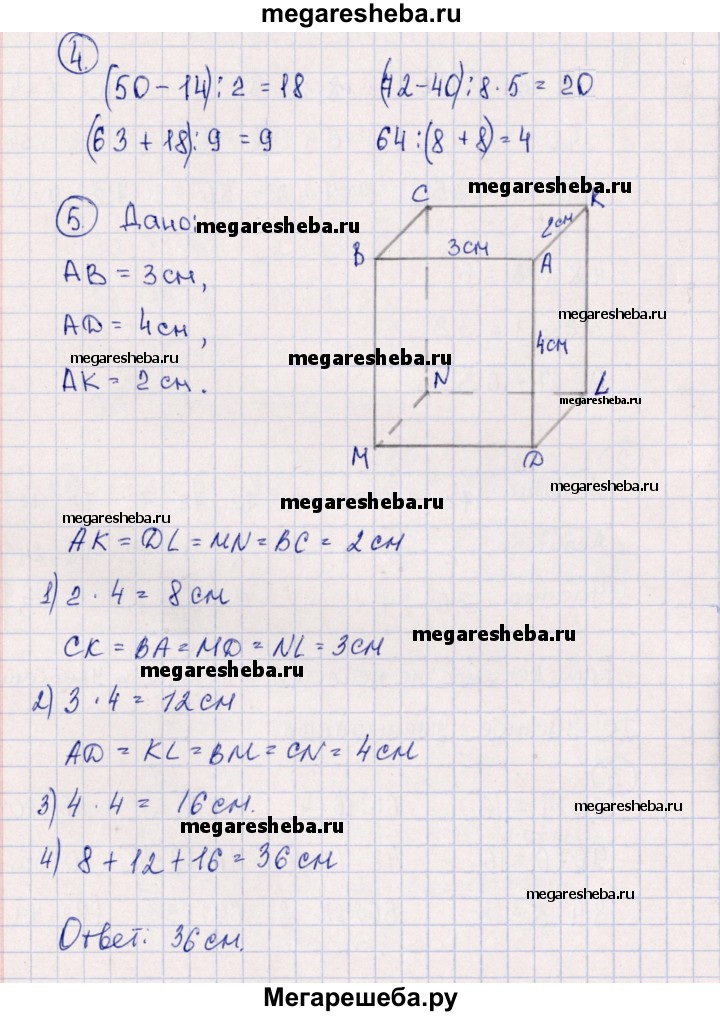 megaresheba.ru
4.
(50 - 14) : 2 = 18 (72 - 40) : 8 · 5 = 20
(63 + 18) : 9 = 9 64 : (8 + 8) = 4
5. Дано: megaresheba.ru
megaresheba.ru
C K
2см
B 3см A
AB = 3см,
megaresheba.ru
AD = 4см,
4см
megaresheba.ru megaresheba.ru
AK = 2см.
N L
megaresheba.ru
M D
megaresheba.ru
megaresheba.ru
AK = DL = MN = BC = 2см
1) 2 · 4 = 8см
megaresheba.ru
CK = BA = MD = NL = 3см
megaresheba.ru
2) 3 · 4 = 12см
AD = KL = BM = CN = 4см
3) 4 · 4 = 16см.
megaresheba.ru
megaresheba.ru
4) 8 + 12 + 16 = 36см
megaresheba.ru
Ответ: 36см.
Мегарешеба.ру